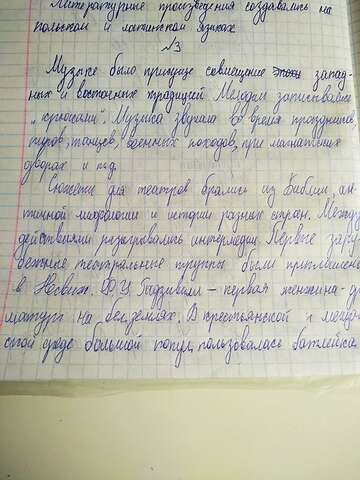 Литературные произведения создавались на
польском и латинском языках
№3
Музыке было присуще совмещение запад-
ных и восточных традиций. Мелодии записывались
"крюками". Музыка звучала во время праздников,
пиров, танцев, военных походов, при магнатских
дворах и т.д.
Сюжеты для театров брались из Библии, ан-
тичной мифологии и истории разных стран. Между
действиями разыгрывались интермедии. Первые зару-
бежные театральные труппы были приглашены
в Несвиж. Ф.У. Радзивилл – первая женщина-д
матург на бел.землях. В крестьянской и мещан
ской среде большой попул. пользовалась батлейка.